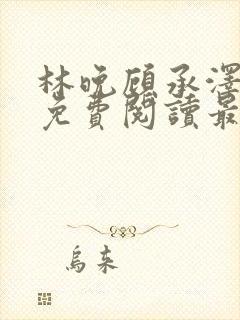 林晚顾承澤
免費閱讀最
烏來